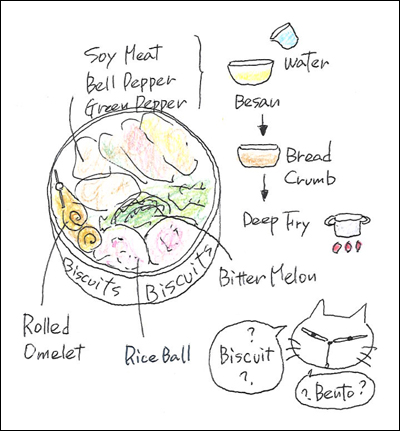 Soy Meat
Bell Pepper
Green Pepper
Water
Besan
Bread
Crumb
Deep Fry
Biscuits Biscuits
Bitter Melon
Rolled
Omelet
Rice Ball
?
Biscuit
?
? Bento?